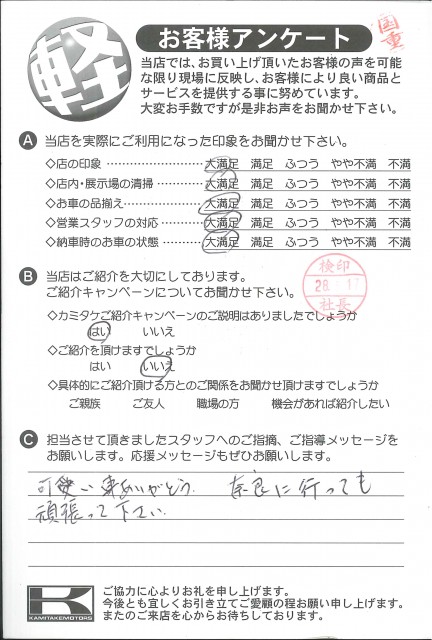 軽
お客様アンケート
国重
当店では、お買い上げ頂いたお客様の声を可能
な限り現場に反映し、お客様により良い商品と
サービスを提供する事に努めています。
大変お手数ですが是非お声をお聞かせ下さい。
A 当店を実際にご利用になった印象をお聞かせ下さい。
◇店の印象 ………………… 大満足 満足 ふつう やや不満 不満
◇店内・展示場の清掃 ………… 大満足 満足 ふつう やや不満 不満
◇お車の品揃え ……………… 大満足 満足 ふつう やや不満 不満
◇営業スタッフの対応 ………… 大満足 満足 ふつう やや不満 不満
◇納車時のお車の状態 ………… 大満足 満足 ふつう やや不満 不満
B 当店はご紹介を大切にしてあります。
ご紹介キャンペーンについてお聞かせ下さい。
検印
28.
社長
◇カミタケご紹介キャンペーンのご説明はありましたでしょうか
はい いいえ
◇ご紹介を頂けますでしょうか
はい いいえ
◇具体的にご紹介頂ける方とのご関係をお聞かせ頂けますでしょうか
ご親族 ご友人 職場の方 機会があれば紹介したい
C 担当させて頂きましたスタッフへのご指摘、ご指導メッセージを
お願いします。応援メッセージもぜひお願いします。
可愛い車ありがとう。 奈良に行っても
頑張って下さい。
K
KAMITAKEMOTORS
ご協力に心よりお礼を申し上げます。
今後とも宜しくお引き立てご愛顧の程お願い申し上げます。
またのご来店を心からお待ちしております。